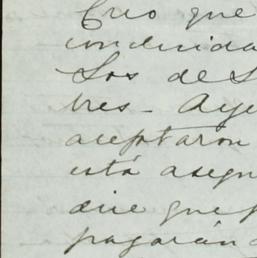 Creo que
conducida
Los de S
tres - Aye
aceptaron
está asegu
dice que p
pagarán